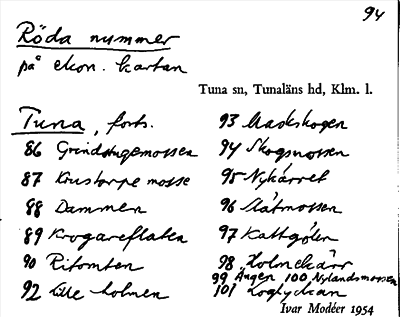 94
Röda nummer
på ekon. kartan
Tuna sn, Tunaläns hd, Klm. l.
Tuna, forts.
86 Grindstugemossen
87 Krustorpe mosse
88 Dammen
89 Krogareflaten
90 Ritomten
92 Lille holmen
93 Madskogen
94 Skogsmossen
95 Nykärret
96 Slåtmossen
97 Kattgölen
98 Holmekärr
99 Ängen 100 Nylandsmossen
101 Loglyckan
Ivar Modéer 1954